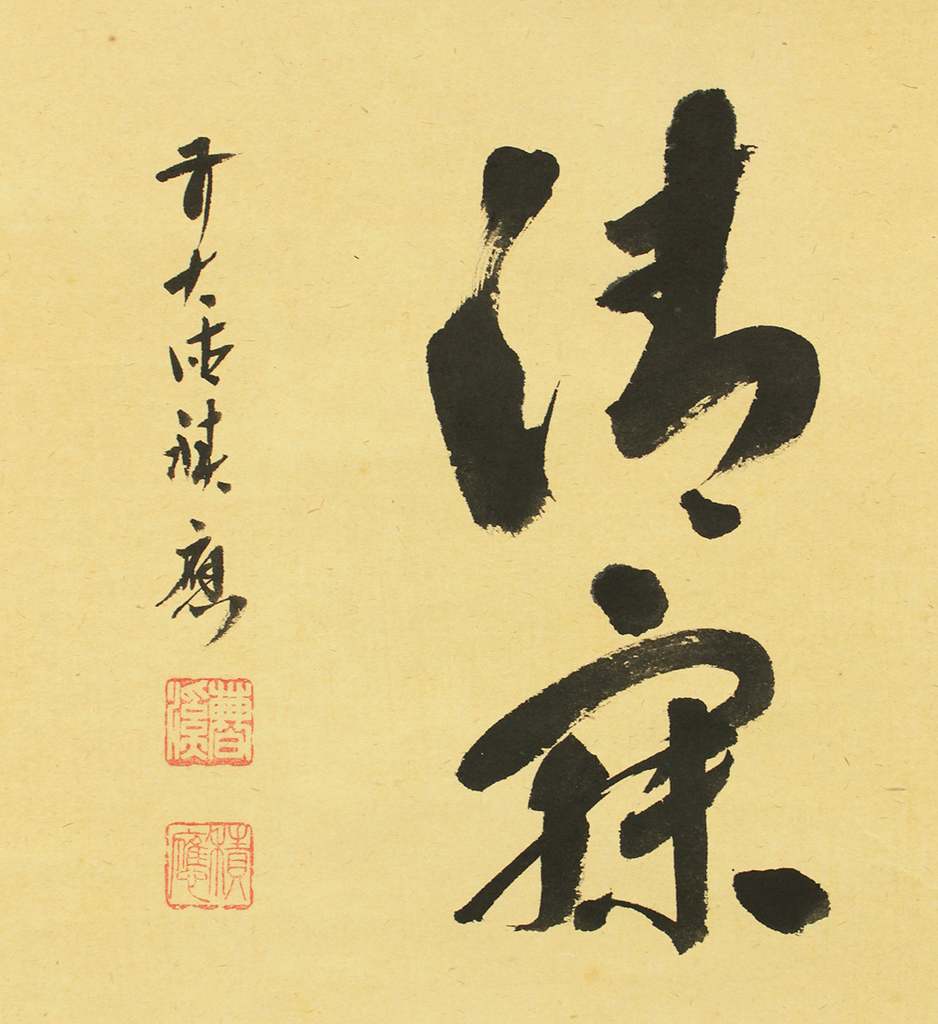 清寂
前大徳積應
積應